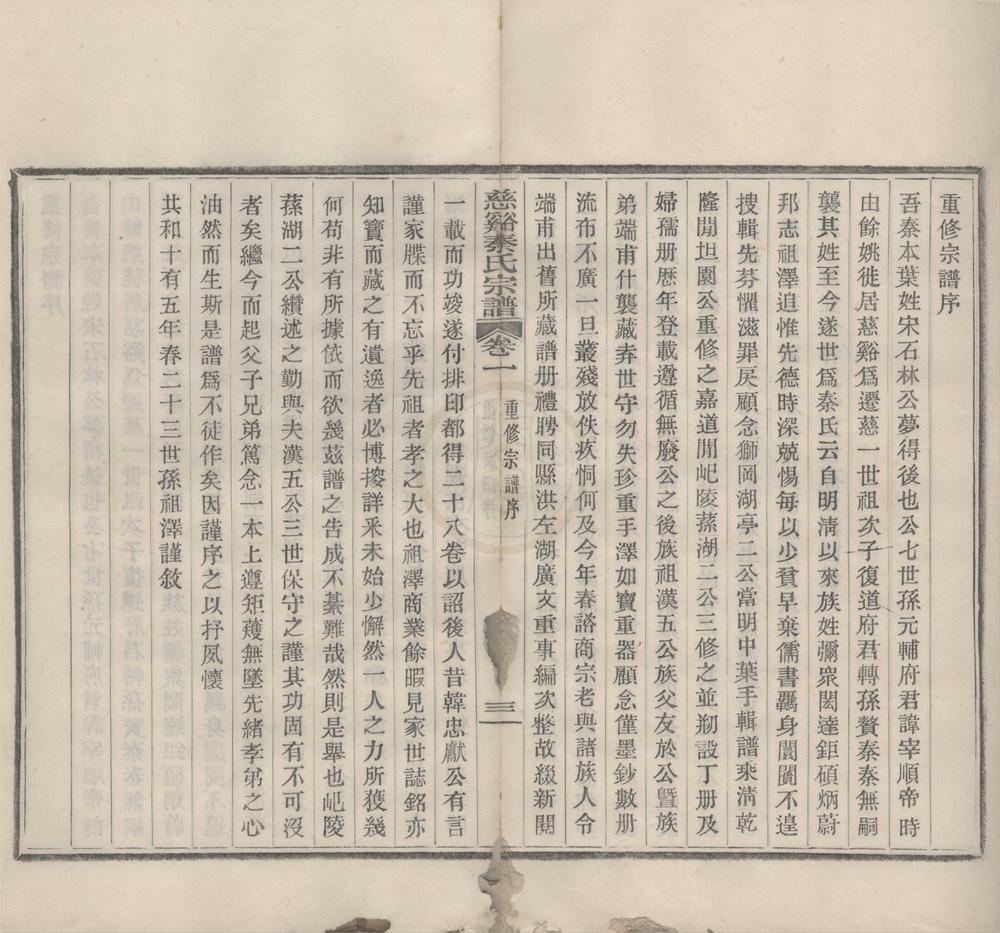 重修宗譜序
吾秦本葉姓宋石林公夢得後也公七世孫元輔府君諱宰順帝時
由餘姚徙居慈谿爲遷慈一世祖次子復道府君轉孫贅秦秦無嗣
襲其姓至今遂世爲秦氏云自明清以來族姓彌衆閎達鉅碩炳蔚
邦志祖澤追惟先德時深兢惕每以少貧早棄儒書羈身闤闠不遑
搜輯先芬懼滋罪戾顧念獅岡湖亭二公當明中葉手輯譜乘清乾
隆閒坦園公重修之嘉道閒屺陵蓀湖二公三修之並剏設丁册及
婦孺册歷年登載遵循無廢公之後族祖漢五公族父友於公曁族
弟端甫什襲藏弆世守勿失珍重手澤如寶重器顧念僅墨鈔數册
流布不廣一旦叢殘放佚疚恫何及今年春諮商宗老與諸族人令
端甫出舊所藏譜册禮聘同縣洪左湖廣文重事編次整故綴新閱
慈谿秦氏宗譜 卷一 重修宗譜序 三
一載而功竣遂付排印都得二十八卷以詔後人昔韓忠獻公有言
謹家牒而不忘乎先祖者孝之大也祖澤商業餘暇見家世誌銘亦
知寶而藏之有遺逸者必博搜詳采未始少懈然一人之力所獲幾
何苟非有所據依而欲幾茲譜之告成不綦難哉然則是舉也屺陵
蓀湖二公纘述之勤與夫漢五公三世保守之謹其功固有不可沒
者矣繼今而起父子兄弟篤念一本上遵矩矱無墜先緒孝弟之心
油然而生斯是譜爲不徒作矣因謹序之以抒夙懷
共和十有五年春二十三世孫祖澤謹敘